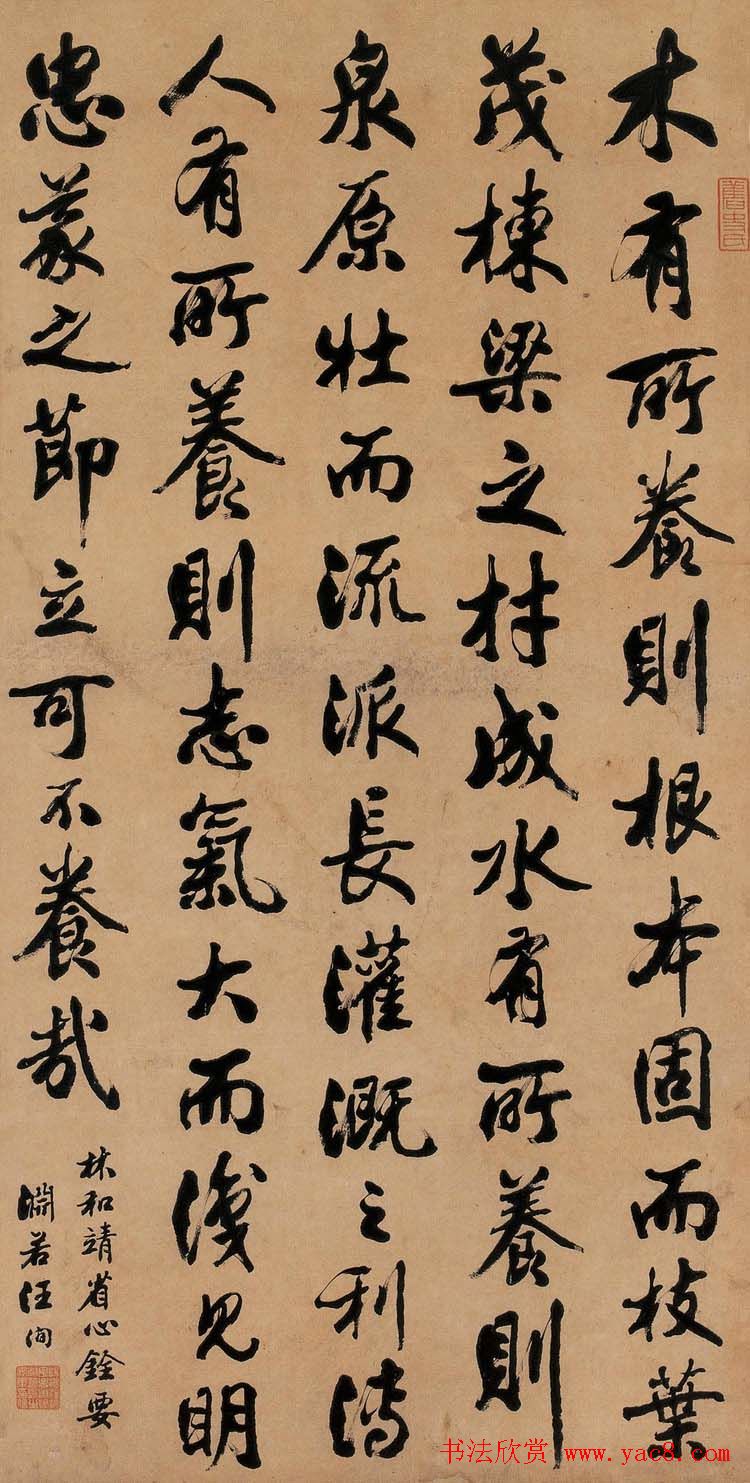 木有所養則根本固而枝葉
茂棟梁之材成水有所養則
泉原壯而流派長灌溉之利溥
人有所養則志氣大而識見明
忠義之節立可不養哉
林和靖省心銓要
淵若汪洵
舊史氏
书法欣赏 www.yac8.com